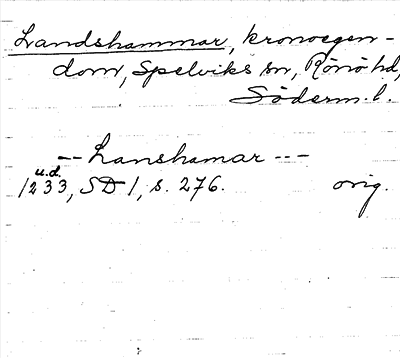 Landshammar, kronoegen-
dom, Spelviks sn, Rönö hd,
Söderm. l.
-- Lanshamar ---
u.d.
1233, SD 1, s. 276. orig.